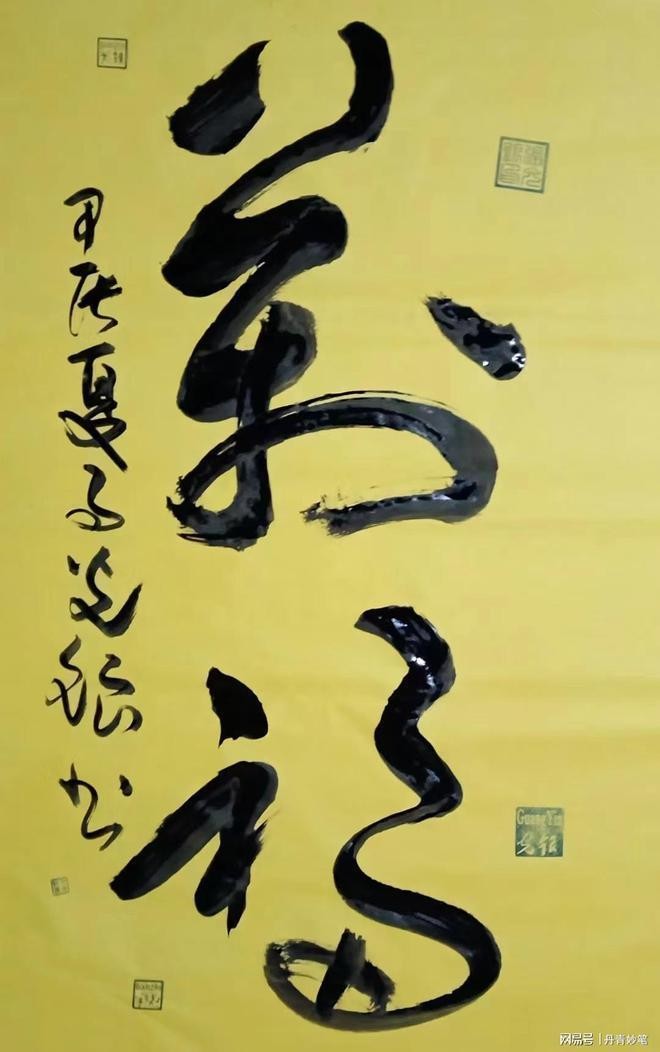 萬福
甲辰夏月光銀书
GuangYin
光銀
网易号 | 丹青妙笔